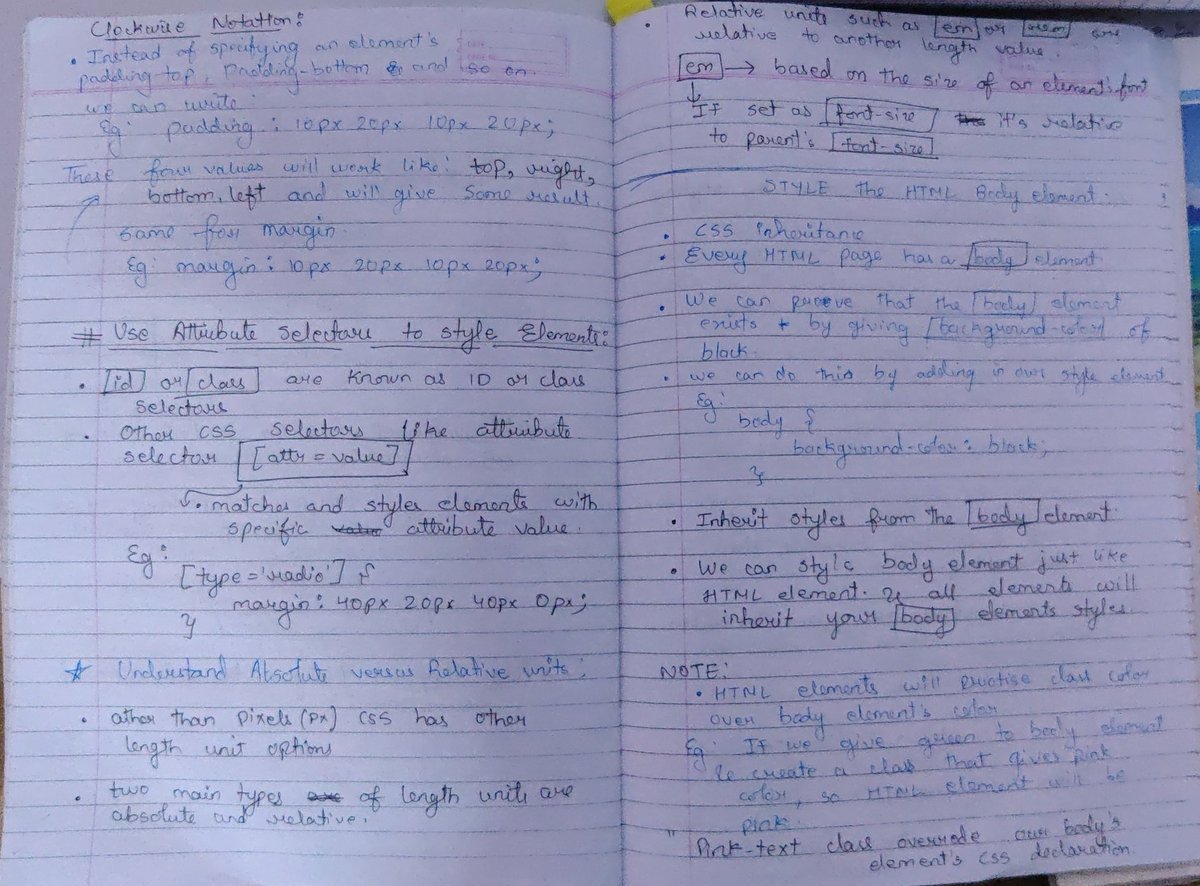 Clockwise Notation:
• Instead of specifying an element's
padding top, padding-bottom & and so on
we can write:
Eg: padding: 10px 20px 10px 20px;
These four values will work like: top, right,
bottom, left and will give same result.
same for margin.
Eg: margin: 10px 20px 10px 20px;
# Use Attribute Selectors to style Elements:
• id or class are known as ID or class
selectors
• Other CSS selectors like attribute
selector [attr = value]
• matches and styles elements with
specific attribute value.
Eg:
[type = 'radio'] {
margin: 40px 20px 40px 0px;
}
☆ Understand Absolute versus Relative units:
• other than pixels (px) CSS has other
length unit options
• two main types of length units are
absolute and relative.
• Relative units such as em or rem are
relative to another length value.
em → based on the size of an element's font
↓
If set as font-size it's relative
to parent's font-size
STYLE the HTML Body element:
• CSS inheritance
• Every HTML page has a body element
• We can proove that the body element
exists by giving background-color of
black.
• we can do this by adding in our style element
Eg:
body {
background-color: black;
}
• Inherit styles from the body element
• We can style body element just like
HTML element. & all elements will
inherit your body elements styles
NOTE:
• HTML elements will practise class color
over body element's color
Eg: If we give green to body element
& create a class that gives pink
color, so HTML element will be
pink.
" Pink-text class override our body's
element's CSS declaration.